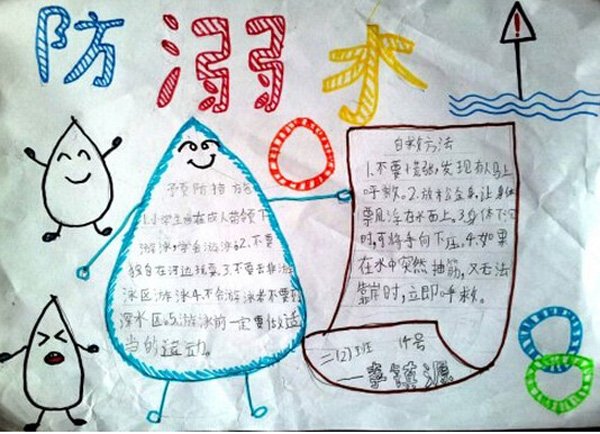 防溺水
!
预防措施
1.小学生应在成人带领下
游泳,学会游泳。2.不要
独自在河边玩耍。3.不要去非游
泳区游泳4.不会游泳者不要到
深水区。5.游泳前一定要做适
当的运动。
自救方法
1.不要慌张,发现有人马上
呼救。2.放松全身,让身体
漂浮在水面上。3.身体下沉
时,可将手向下压。4.如果
在水中突然抽筋,又无法
靠岸时,立即呼救。
二(2)班 14号